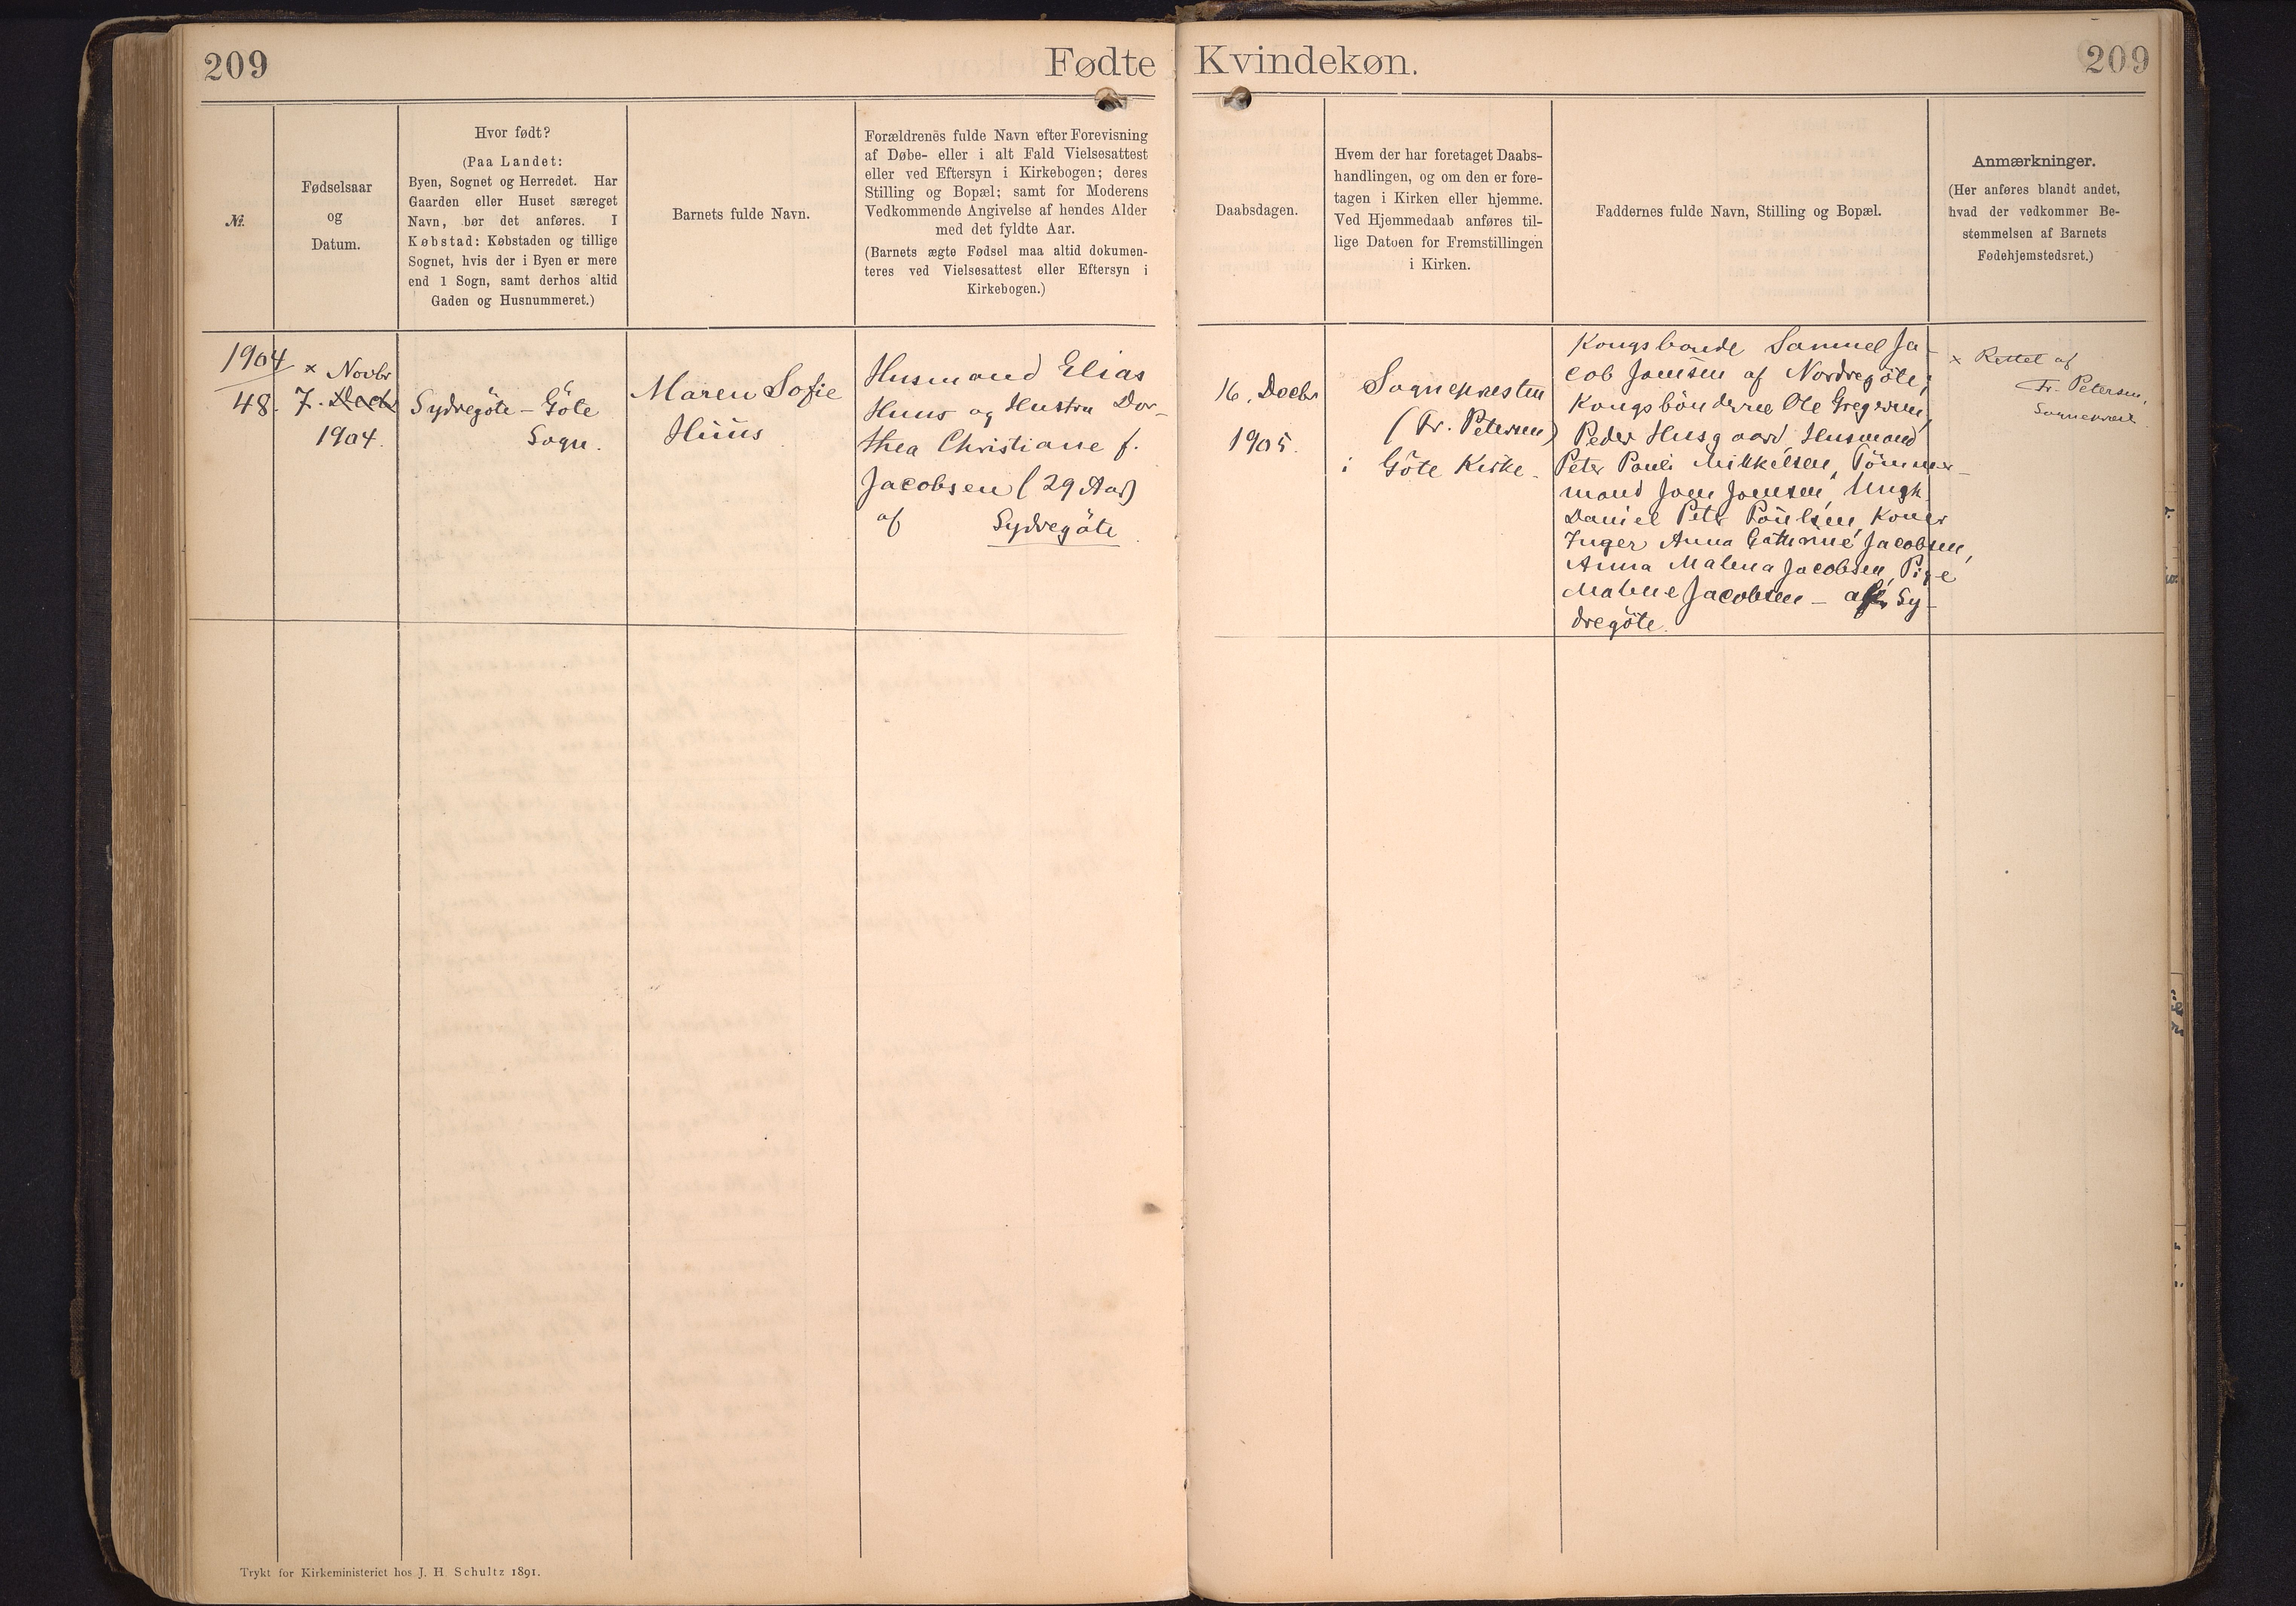 209
Fødte
Kvindekøn.
209
№.
Fødselsaar
og
Datum.
Hvor født?
(Paa Landet:
Byen, Sognet og Herredet. Har
Gaarden eller Huset særeget
Navn, bør det anføres. I
Købstad: Købstaden og tillige
Sognet, hvis der i Byen er mere
end 1 Sogn, samt derhos altid
Gaden og Husnummeret.)
Barnets fulde Navn.
Forældrenes fulde Navn efter Forevisning
af Døbe- eller i alt Fald Vielsesattest
eller ved Eftersyn i Kirkebogen; deres
Stilling og Bopæl; samt for Moderens
Vedkommende Angivelse af hendes Alder
med det fyldte Aar.
(Barnets ægte Fødsel maa altid dokumen-
teres ved Vielsesattest eller Eftersyn i
Kirkebogen.)
Daabsdagen.
Hvem der har foretaget Daabs-
handlingen, og om den er fore-
tagen i Kirken eller hjemme.
Ved Hjemmedaab anføres til-
lige Datoen for Fremstillingen
i Kirken.
Faddernes fulde Navn, Stilling og Bopæl.
Anmærkninger.
(Her anføres blandt andet,
hvad der vedkommer Be-
stemmelsen af Barnets
Fødehjemstedsret.)
1904
48.
x Novbr
7. Decbr
1904.
Sydregöte - Göte
Sogn.
Maren Sofie
Huus
Husmand Elias
Huus og Hustru Dor-
thea Christiane f.
Jacobsen (29 Aar)
af Sydregöte.
16. Decbr
1905.
Sognepresten
(Fr. Petersen)
i Göte Kirke.
Kongsbonde Samuel Ja-
cob Joensen af Nordregöte;
Kongsbönderne Ole Gregersen,
Peder Husgaard, Husmand
Peter Pauli Mikkelsen, Tömmer-
mand Joen Joensen, Ungk.
Daniel Petr Poulsen, Koner
Inger Anna Cathrine Jacobsen,
Anna Malena Jacobsen, Pige
Malene Jacobsen - af Sy-
dregöte.
x Rettet af
Fr. Petersen,
Sognepræst.
Trykt for Kirkeministeriet hos J. H. Schultz 1891.